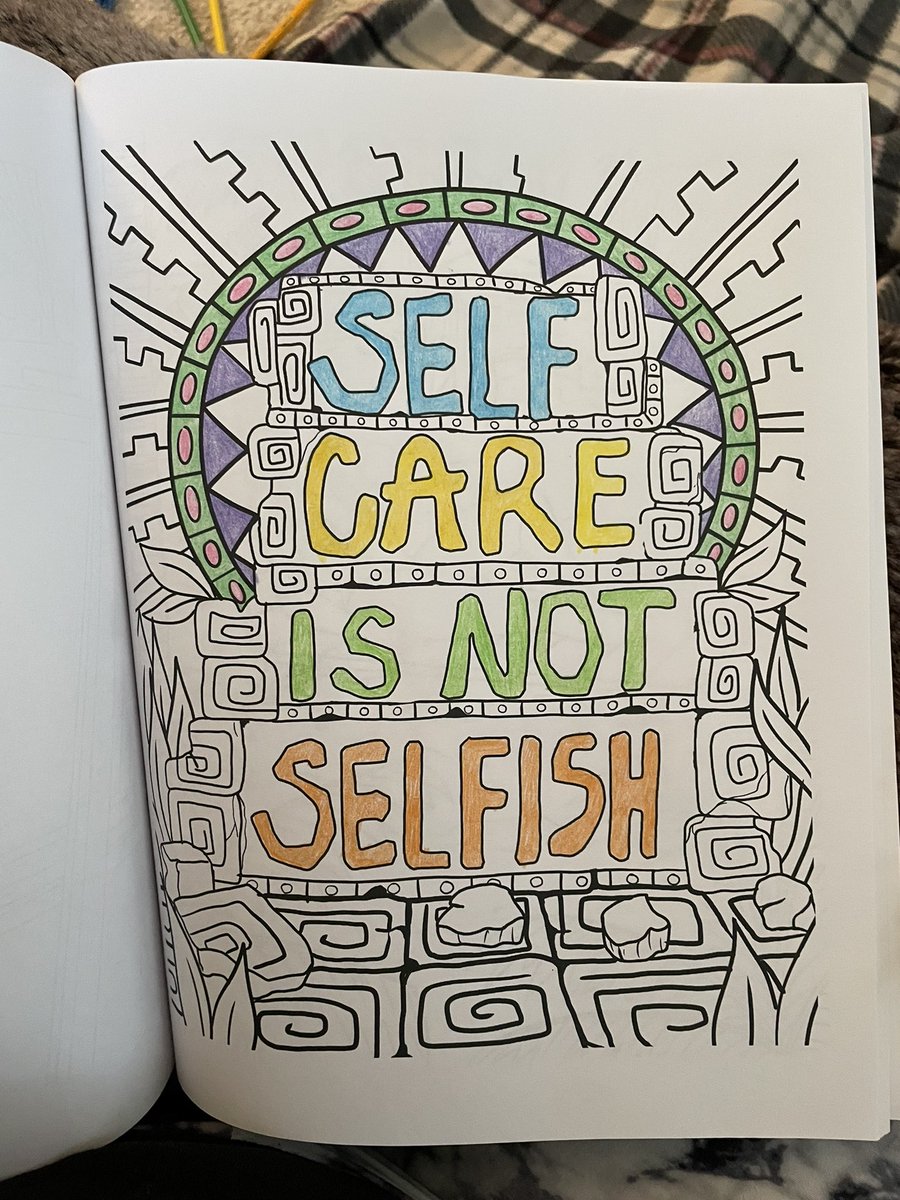 SELF
CARE
IS NOT
SELFISH